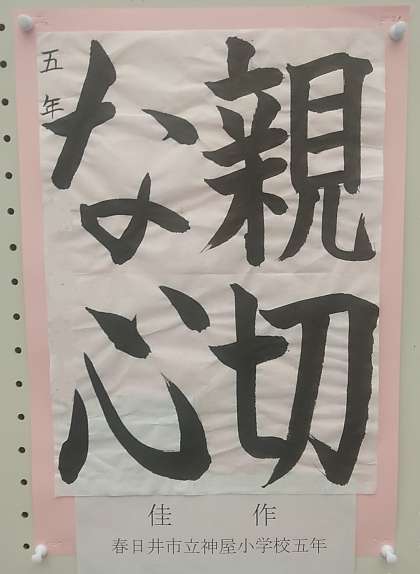 親切
な心
五年
佳作
春日井市立神屋小学校五年